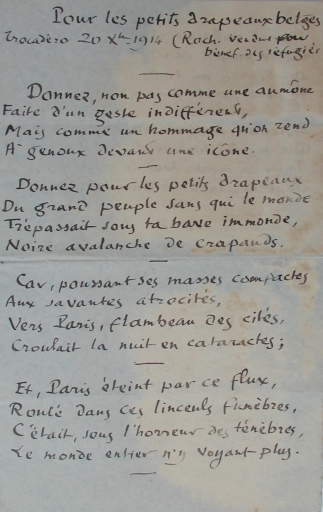 Pour les petits drapeaux belges
Trocadéro 20 Xbre 1914 (Roch. vendu pour
bénéf. des réfugiés
Donnez, non pas comme une aumône
Faite d'un geste indifférent,
Mais comme un hommage qu'on rend
A genoux devant une icône.
Donnez pour les petits drapeaux
Du grand peuple sans qui le monde
Trépassait sous ta bave immonde,
Noire avalanche de crapauds.
Car, poussant ses masses compactes
Aux savantes atrocités,
Vers Paris, flambeau des cités,
Croulait la nuit en cataractes ;
Et, Paris éteint par ce flux,
Roulé dans ces linceuls funèbres,
C'était, sous l'horreur des ténèbres,
Le monde entier n'y voyant plus.